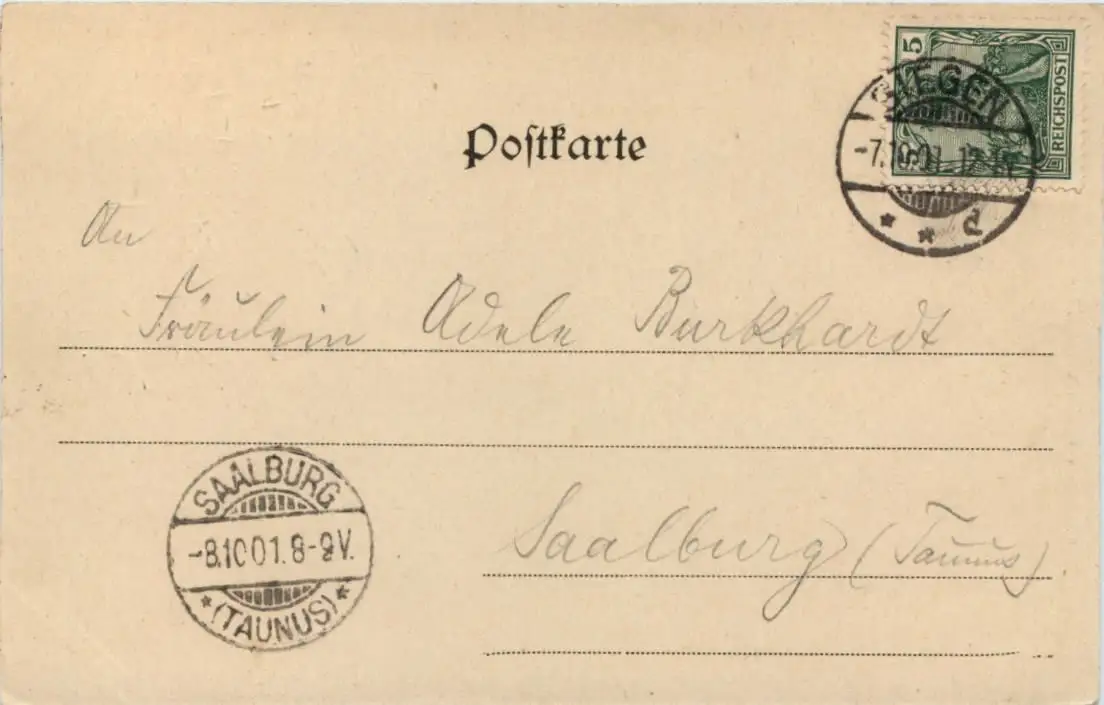 5
REICHSPOST
SIEGEN
-7.10.01.
d
Postkarte
An
Fräulein Adele Burkhardt
SAALBURG
-8.10 01. 8-9 V.
(TAUNUS)
Saalburg (Taunus)